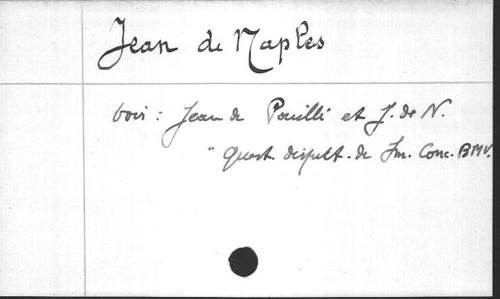 Jean de Naples
voir : Jean de Pouilli et J. de N.
" Quest. disput. de Im. Conc. BMV.